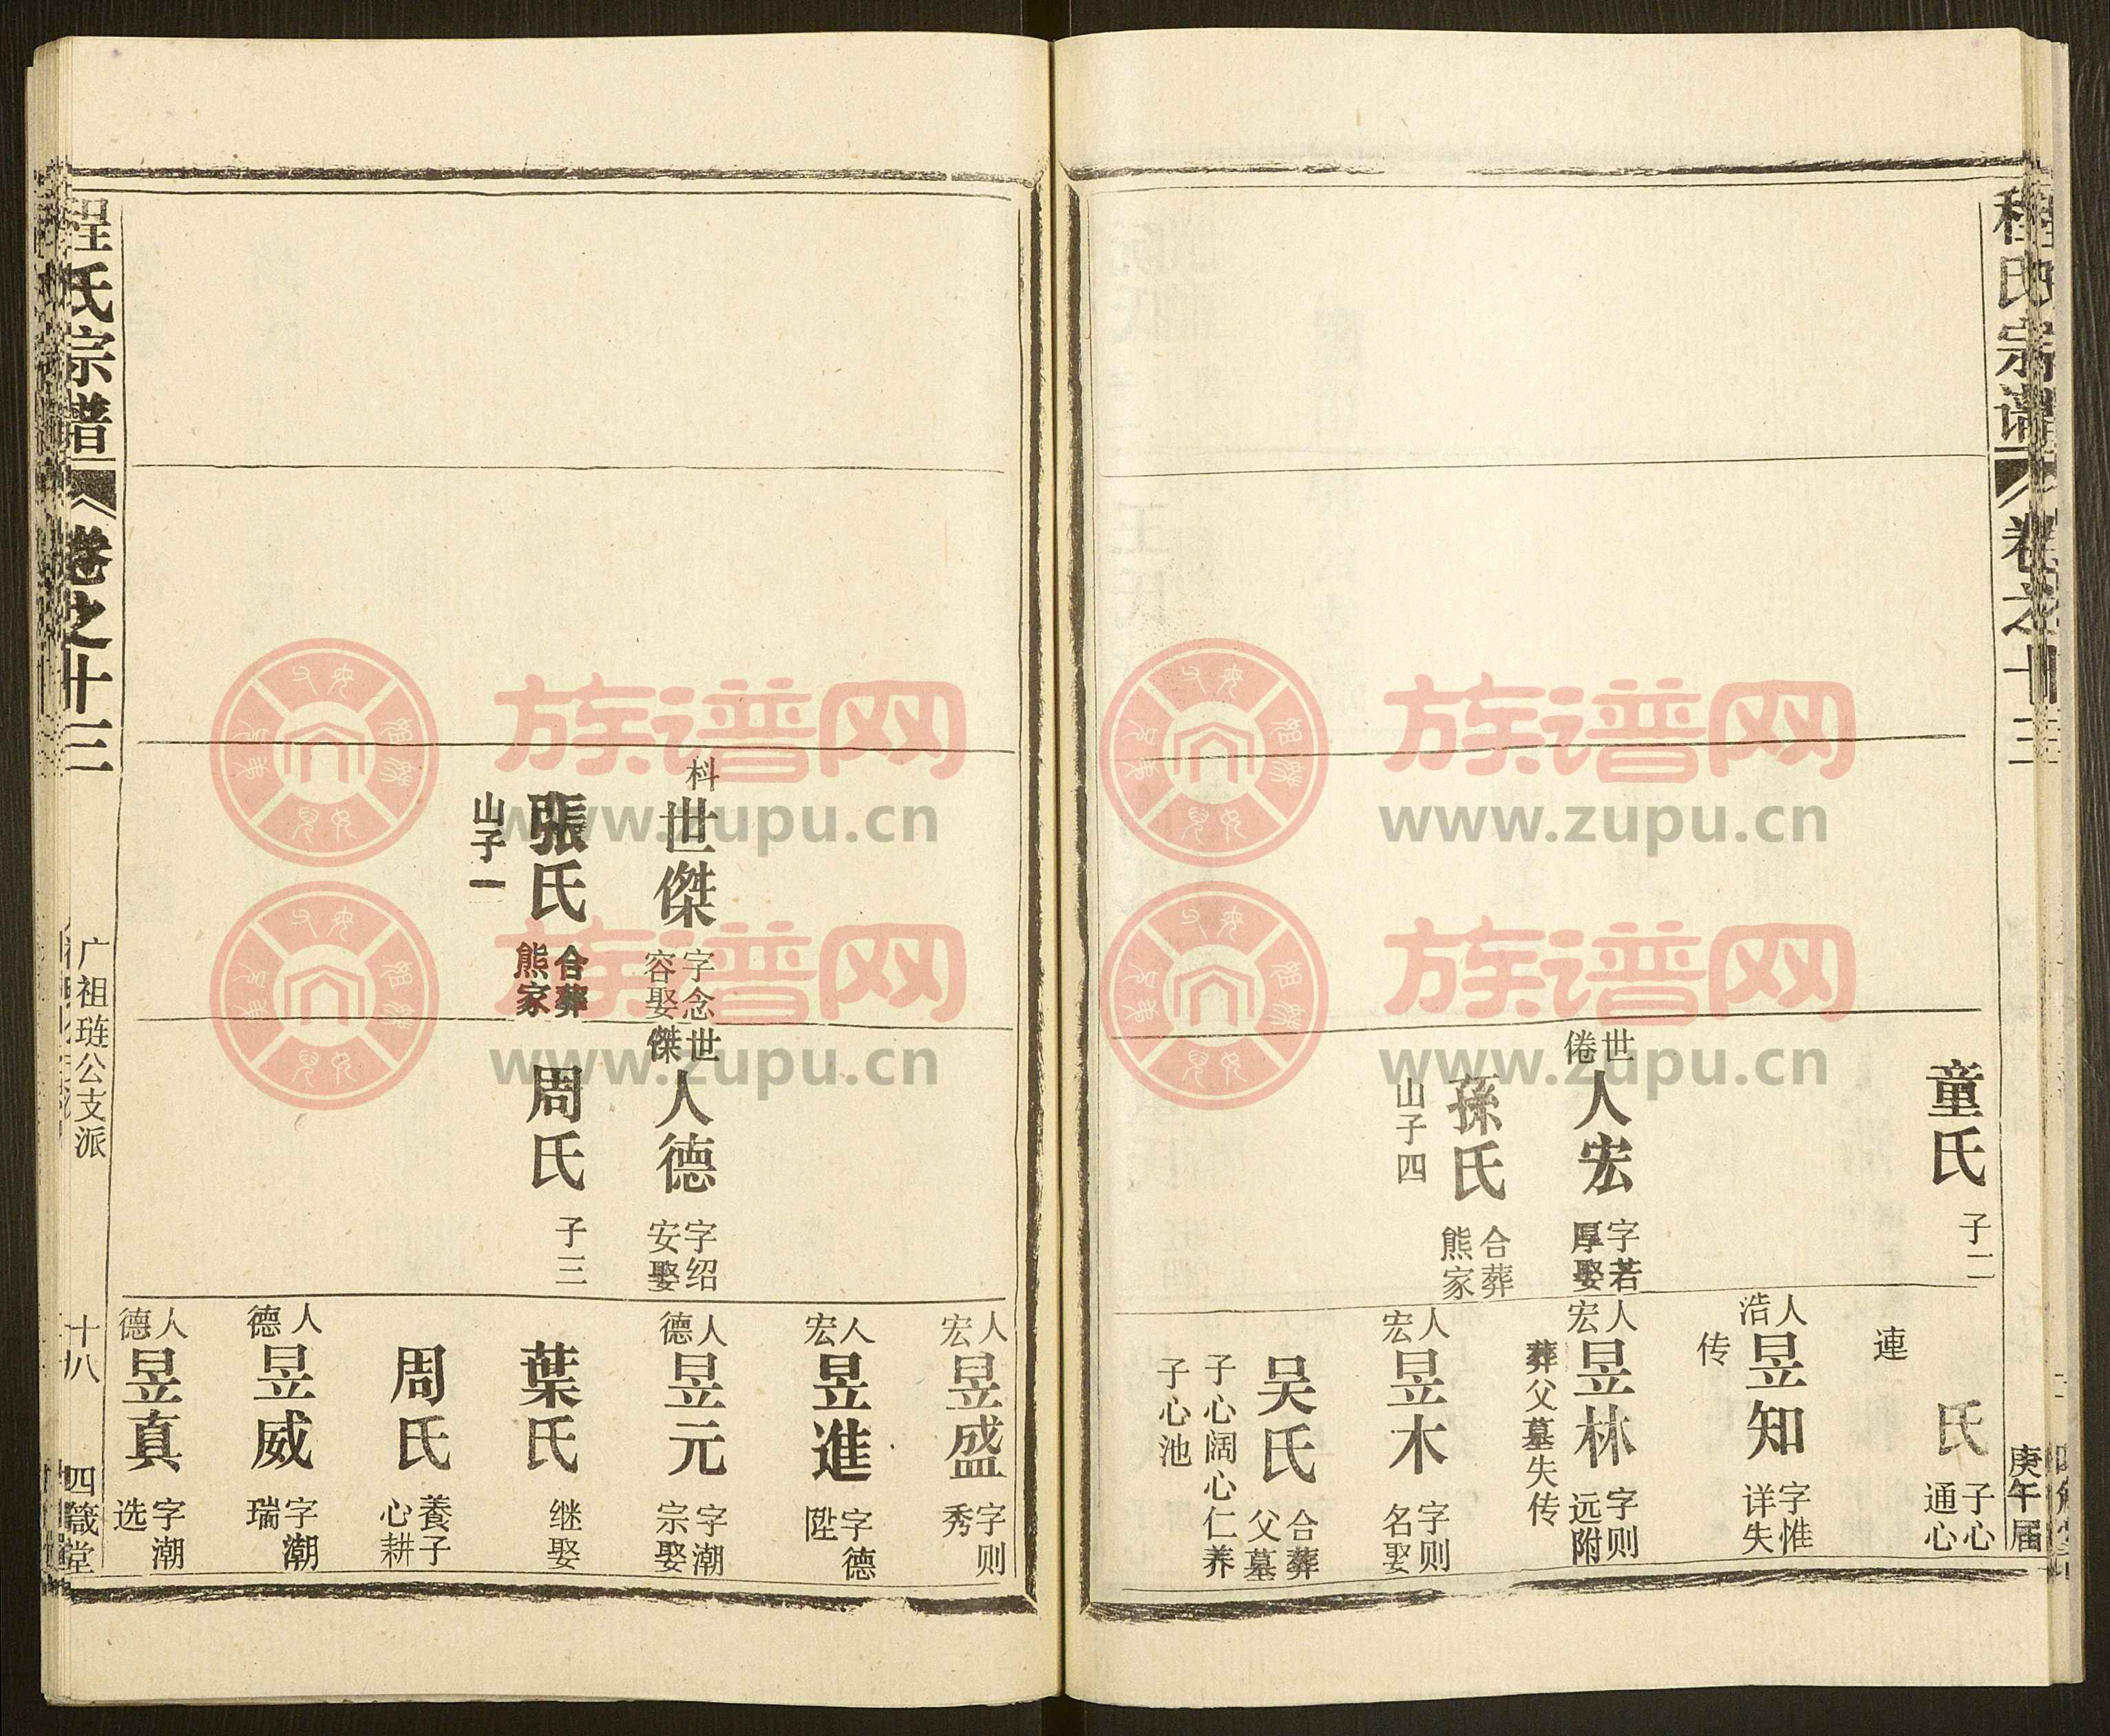 程氏宗譜
卷之十三
庚午届
童氏
子二
世倦
人宏
字若厚娶
孫氏
合葬熊家
山子四
連
氏
子心通心
人浩
昱知
字惟详失
传
人宏
昱林
字则远附
葬父墓失传
人宏
昱木
字则名娶
吴氏
合葬父墓
子心阔心仁养
子心池
枓
世傑
字念容娶
張氏
合葬熊家
山子一
世傑
人德
字绍安娶
周氏
子三
人宏
昱盛
字则秀
人宏
昱進
字德陞
人德
昱元
字潮宗娶
葉氏
继娶
周氏
養子心耕
人德
昱威
字潮瑞
人德
昱真
字潮选
程氏宗譜
卷之十三
广祖琏公支派
十八
四箴堂
族谱网
www.zupu.cn
族谱网
www.zupu.cn
族谱网
www.zupu.cn
族谱网
www.zupu.cn